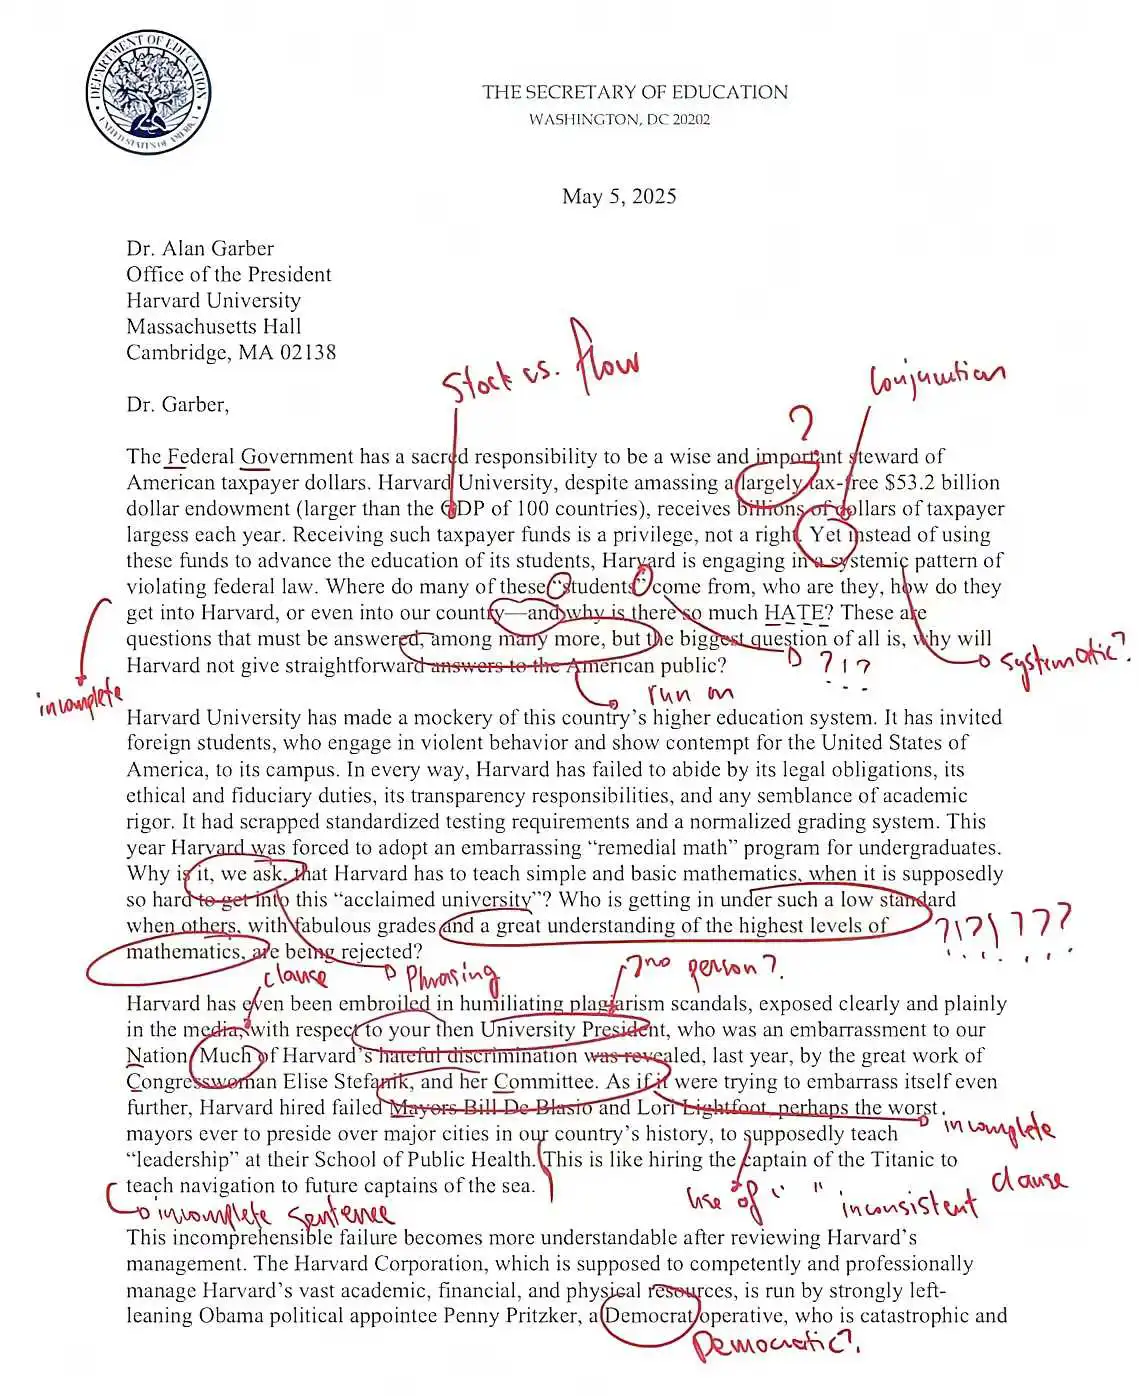 DEPARTMENT OF EDUCATION
UNITED STATES OF AMERICA
THE SECRETARY OF EDUCATION
WASHINGTON, DC 20202
May 5, 2025
Dr. Alan Garber
Office of the President
Harvard University
Massachusetts Hall
Cambridge, MA 02138
Stock vs. flow
Conjunction
Dr. Garber,
?
The Federal Government has a sacred responsibility to be a wise and important steward of
American taxpayer dollars. Harvard University, despite amassing a largely tax-free $53.2 billion
dollar endowment (larger than the GDP of 100 countries), receives billions of dollars of taxpayer
largess each year. Receiving such taxpayer funds is a privilege, not a right. Yet instead of using
these funds to advance the education of its students, Harvard is engaging in a systemic pattern of
violating federal law. Where do many of these “students” come from, who are they, how do they
get into Harvard, or even into our country—and why is there so much HATE? These are
questions that must be answered, among many more, but the biggest question of all is, why will
Harvard not give straightforward answers to the American public?
?!?
systematic?
incomplete
run on
Harvard University has made a mockery of this country’s higher education system. It has invited
foreign students, who engage in violent behavior and show contempt for the United States of
America, to its campus. In every way, Harvard has failed to abide by its legal obligations, its
ethical and fiduciary duties, its transparency responsibilities, and any semblance of academic
rigor. It had scrapped standardized testing requirements and a normalized grading system. This
year Harvard was forced to adopt an embarrassing “remedial math” program for undergraduates.
Why is it, we ask, that Harvard has to teach simple and basic mathematics, when it is supposedly
so hard to get into this “acclaimed university”? Who is getting in under such a low standard
when others, with fabulous grades and a great understanding of the highest levels of
mathematics, are being rejected?
?!?!???
clause
Phrasing
2nd person?
Harvard has even been embroiled in humiliating plagiarism scandals, exposed clearly and plainly
in the media, with respect to your then University President, who was an embarrassment to our
Nation. Much of Harvard’s hateful discrimination was revealed, last year, by the great work of
Congresswoman Elise Stefanik, and her Committee. As if it were trying to embarrass itself even
further, Harvard hired failed Mayors Bill De Blasio and Lori Lightfoot, perhaps the worst
mayors ever to preside over major cities in our country’s history, to supposedly teach
“leadership” at their School of Public Health. This is like hiring the captain of the Titanic to
teach navigation to future captains of the sea.
incomplete
clause
incomplete sentence
use of “ ” inconsistent
This incomprehensible failure becomes more understandable after reviewing Harvard’s
management. The Harvard Corporation, which is supposed to competently and professionally
manage Harvard’s vast academic, financial, and physical resources, is run by strongly left-
leaning Obama political appointee Penny Pritzker, a Democrat operative, who is catastrophic and
Democratic?